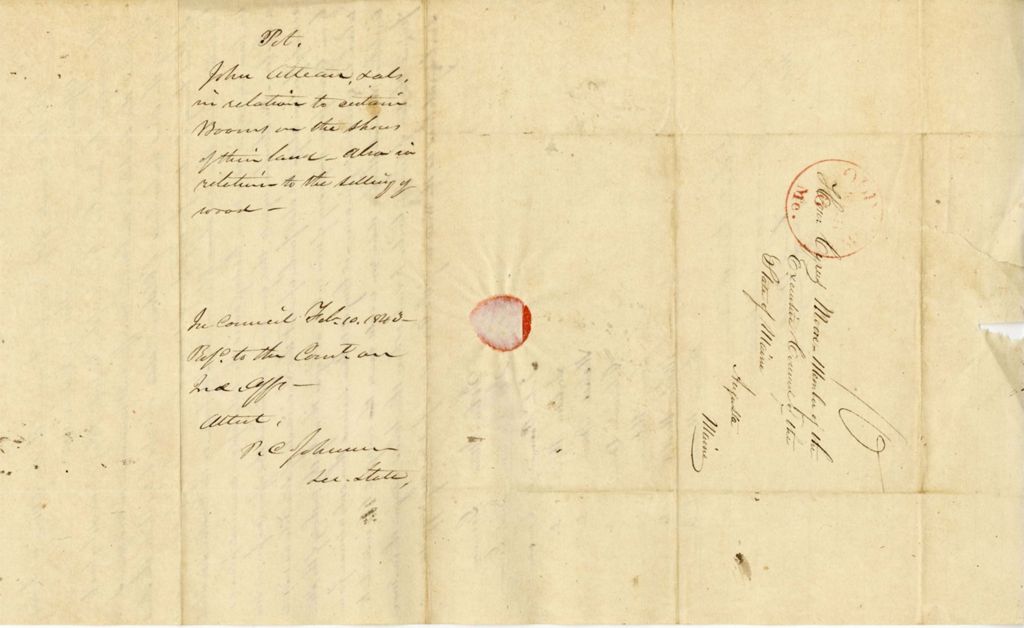 Pet.
John Attean, & als.
in relation to certain
Booms on the shores
of their land - also in
relation to the selling of
wood -
In Council Feb. 10. 1843 -
Ref.d to the Com.t on
Ind. Aff.s -
Attest,
P. C. Johnson
Sec. State,
OLD
Me.
Hon Cyrus Moore - Member of the
Executive Council of the
State of Maine
Augusta
Maine